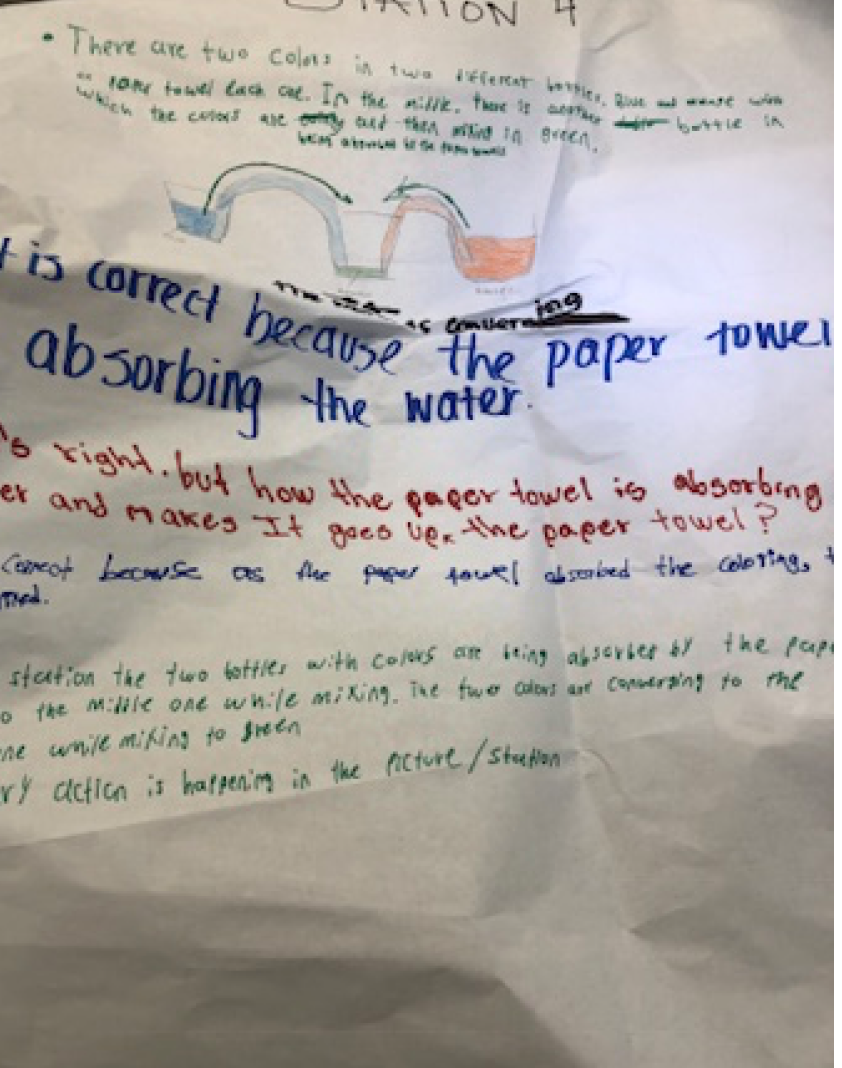 STATION 4
• There are two colors in two different bottles. Blue and
towel each one. In the middle, there is another bottle in
which the colors are and then mixing in green.
being absorbed by the paper towels
is converning
t is correct because the paper towel
absorbing the water.
's right. but how the paper towel is absorbing
er and makes It goes up. the paper towel?
Correct because as the paper towel absorbed the coloring, t
station the two bottles with colors are being absorbed by the pape
o the middle one while mixing. The two colors are converging to the
ne while mixing to green
ry action is happening in the picture/station